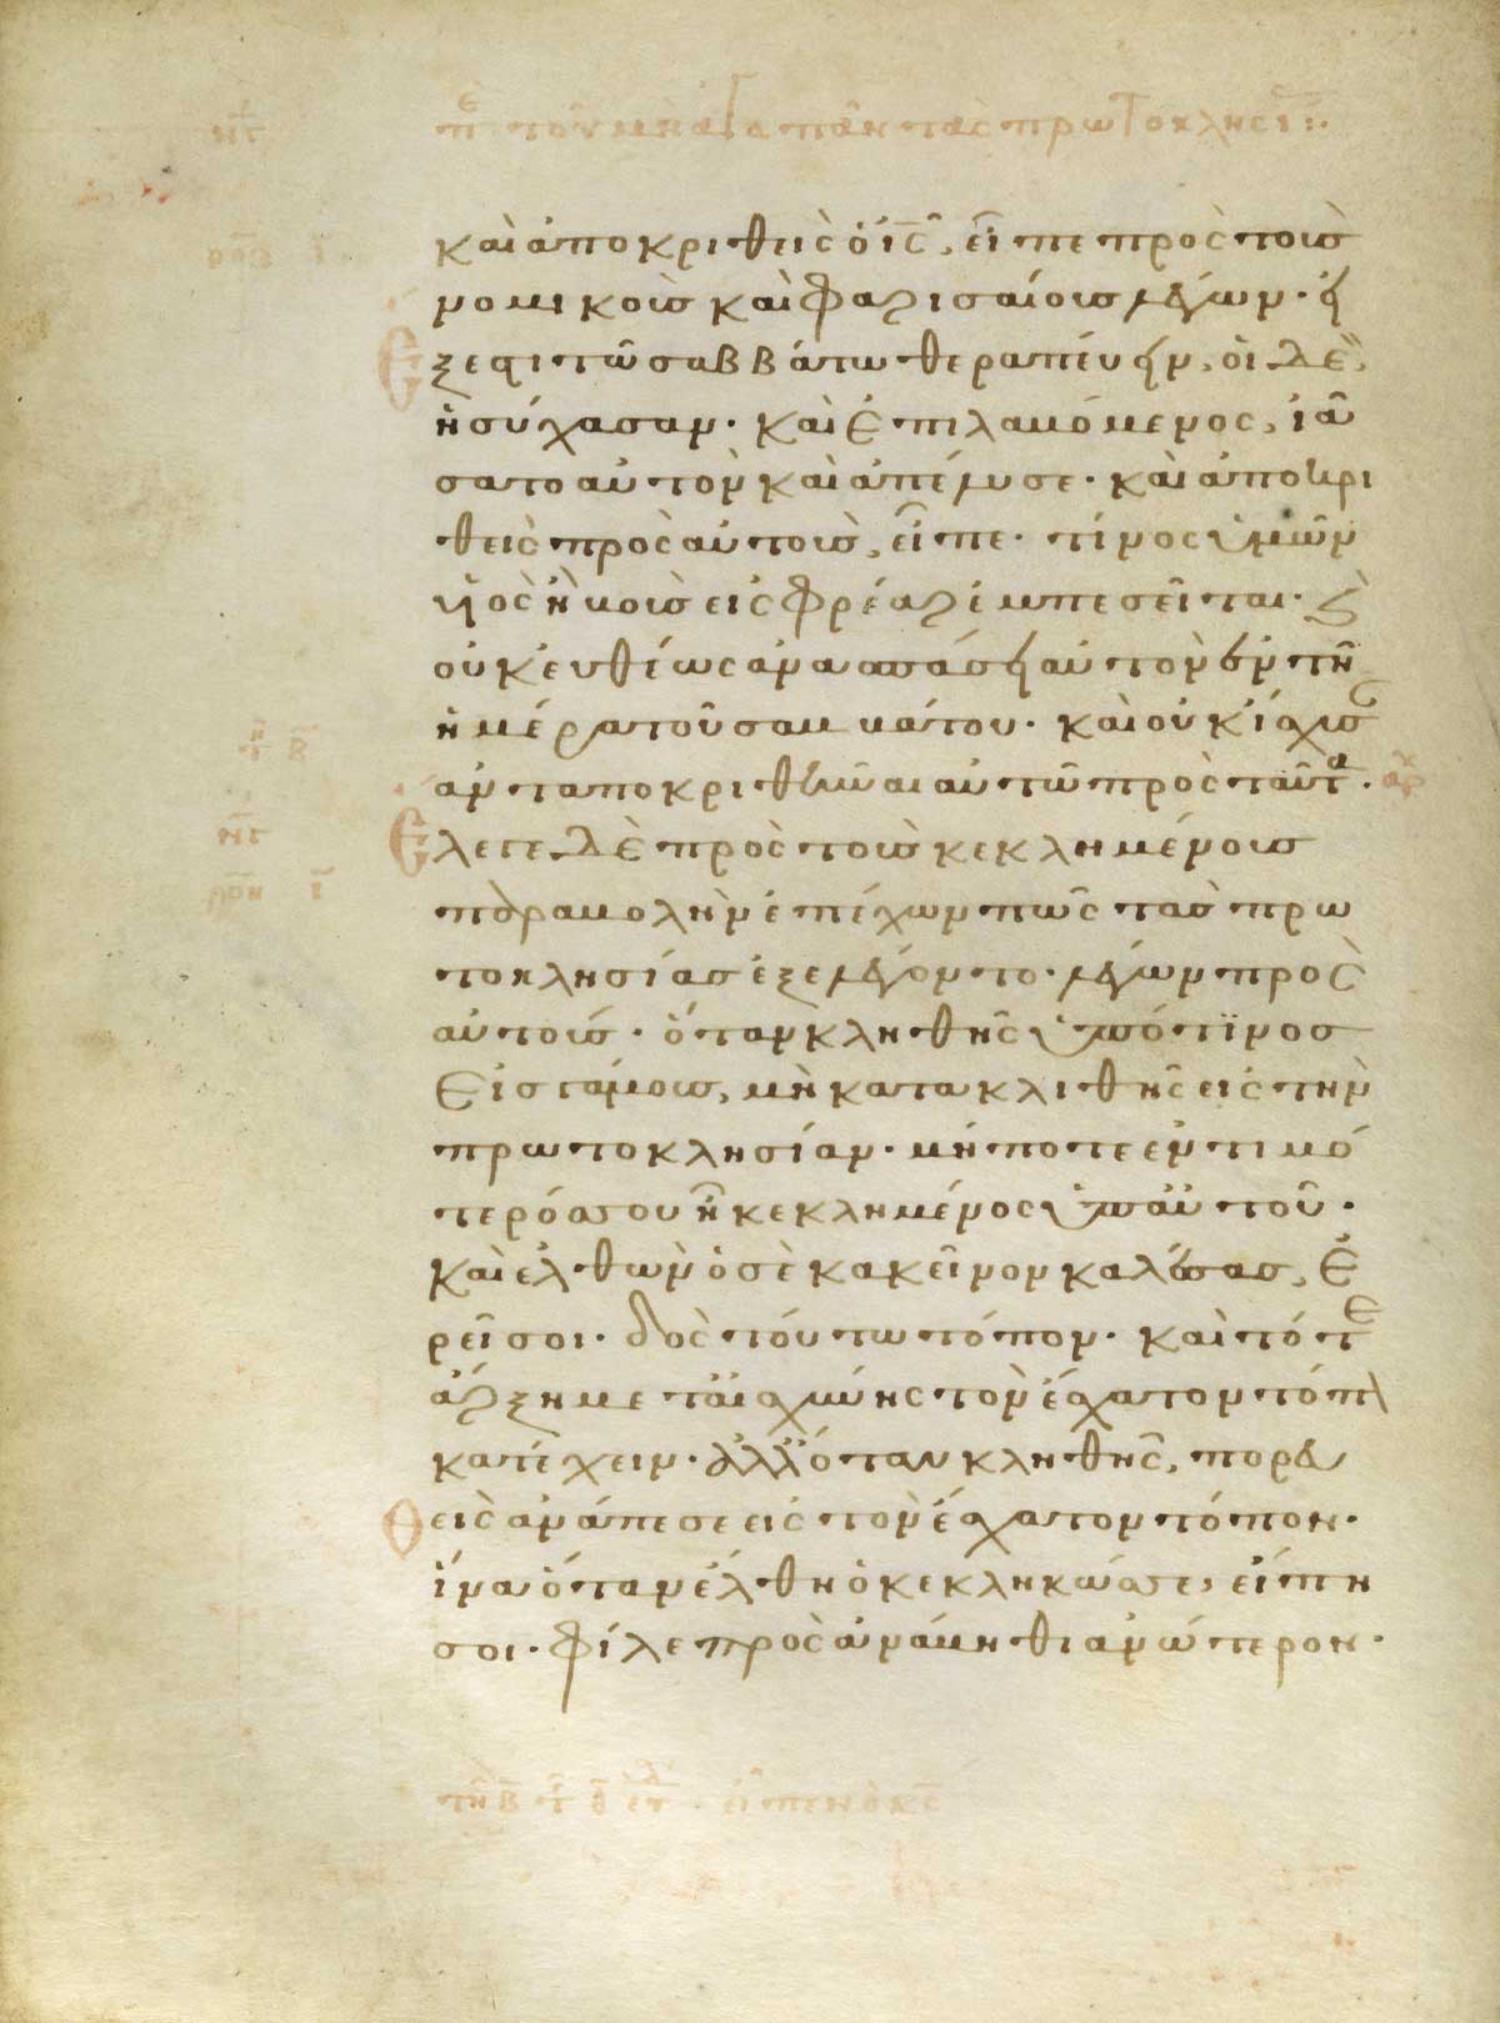 πε τῶν μὴ ἀγαπᾶν τὰς πρωτοκλησί:·
καὶ ἀποκριθεὶς ὁ ἰς̅, εἶπε πρὸς τοὺς
νομικοὺς καὶ φαρισαίους λέγων· εἰ
ἔξεστι τῶ σαββάτω θεραπέυειν, οἱ δὲ,
ἡσύχασαν· καὶ ἐπιλαβόμενος, ἰά
σατο αὐτὸν καὶ ἀπέλυσε· καὶ ἀποκρι
θεὶς πρὸς αὐτοὺς, εἶπε· τίνος ὑμῶν
υἱὸς ἢ βοῦς εἰς φρέαρ ἐμπεσεῖται· ϗ
οὐκ ἐυθέως ἀνασπάσει αὐτὸν ἐν τῆ
ἡμέρα τοῦ σαββάτου· καὶ οὐκ ἴσχυσ
ἀνταποκριθῆναι αὐτῶ πρὸς ταῦτα·
ἔλεγε δὲ πρὸς τοὺς κεκλημένους
παραβολὴν ἐπέχων πῶς τὰσ πρω
τοκλησίασ ἐξελέγοντο· λέγων πρὸς
αὐτούς· ὅταν κληθῆς ὑπό τϊνοσ
εἰσ γάμους, μὴ κατακλιθῆς εἰς τὴν
πρωτοκλησίαν· μήποτε ἐντιμό
τερόσ σου ἦ κεκλημένος ὑπ αὐτοῦ·
καὶ ἐλθὼν ὁ σὲ κακεῖνον καλέσασ, ἐ
ρεῖ σοι· δὸς τούτω τόπον· καὶ τότε
ἄρξη μετ αἰσχύνης τὸν ἔσχατον τόπ
κατέχειν· ἀλλ ὅταν κληθῆς, πορευ
θεὶς ἀνάπεσε εἰς τὸν ἔσχατον τόπον·
ἵνα ὅταν ἔλθη ὁ κεκληκώς σε, εἴπη
σοι· φίλε προσανάβηθι ἀνώτερον·